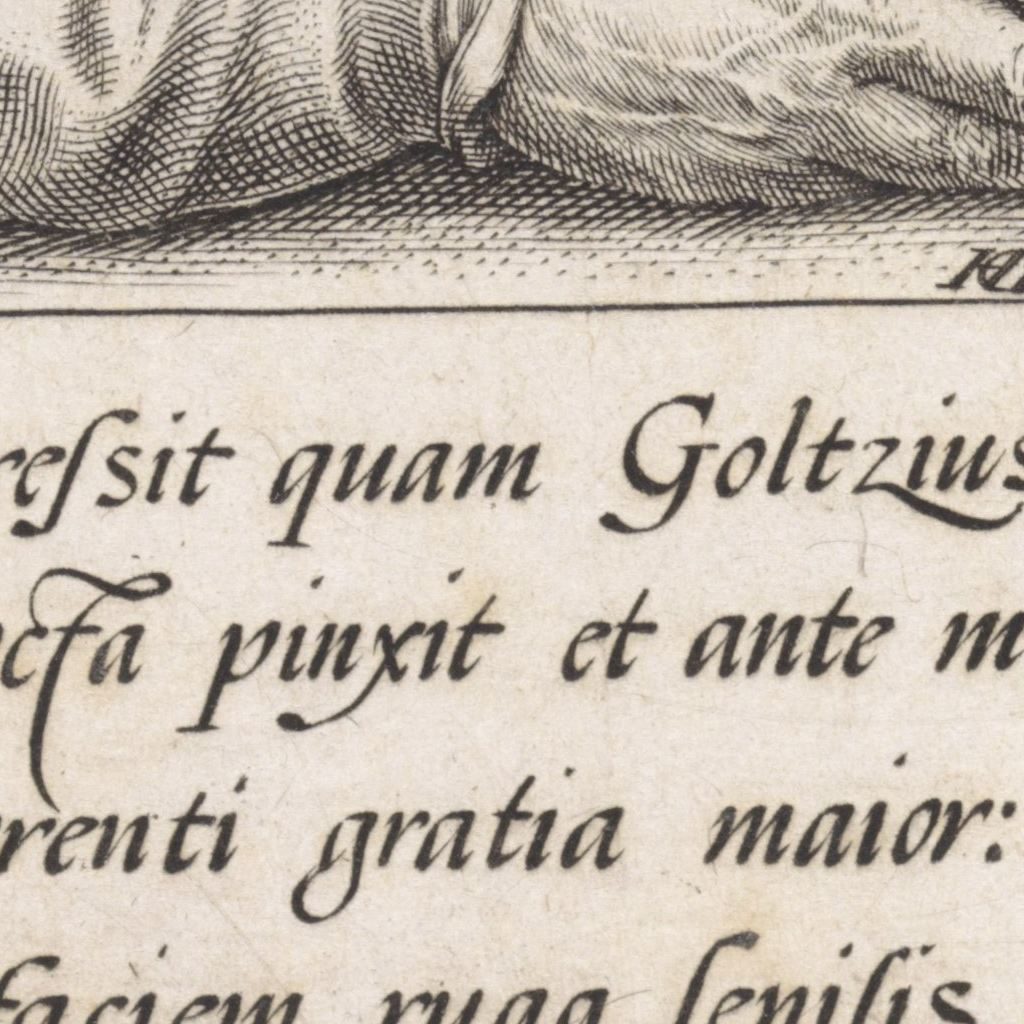 reſsit quam Goltzius
cta pinxit et ante m
renti gratia maior:
faciem ruga ſenilis